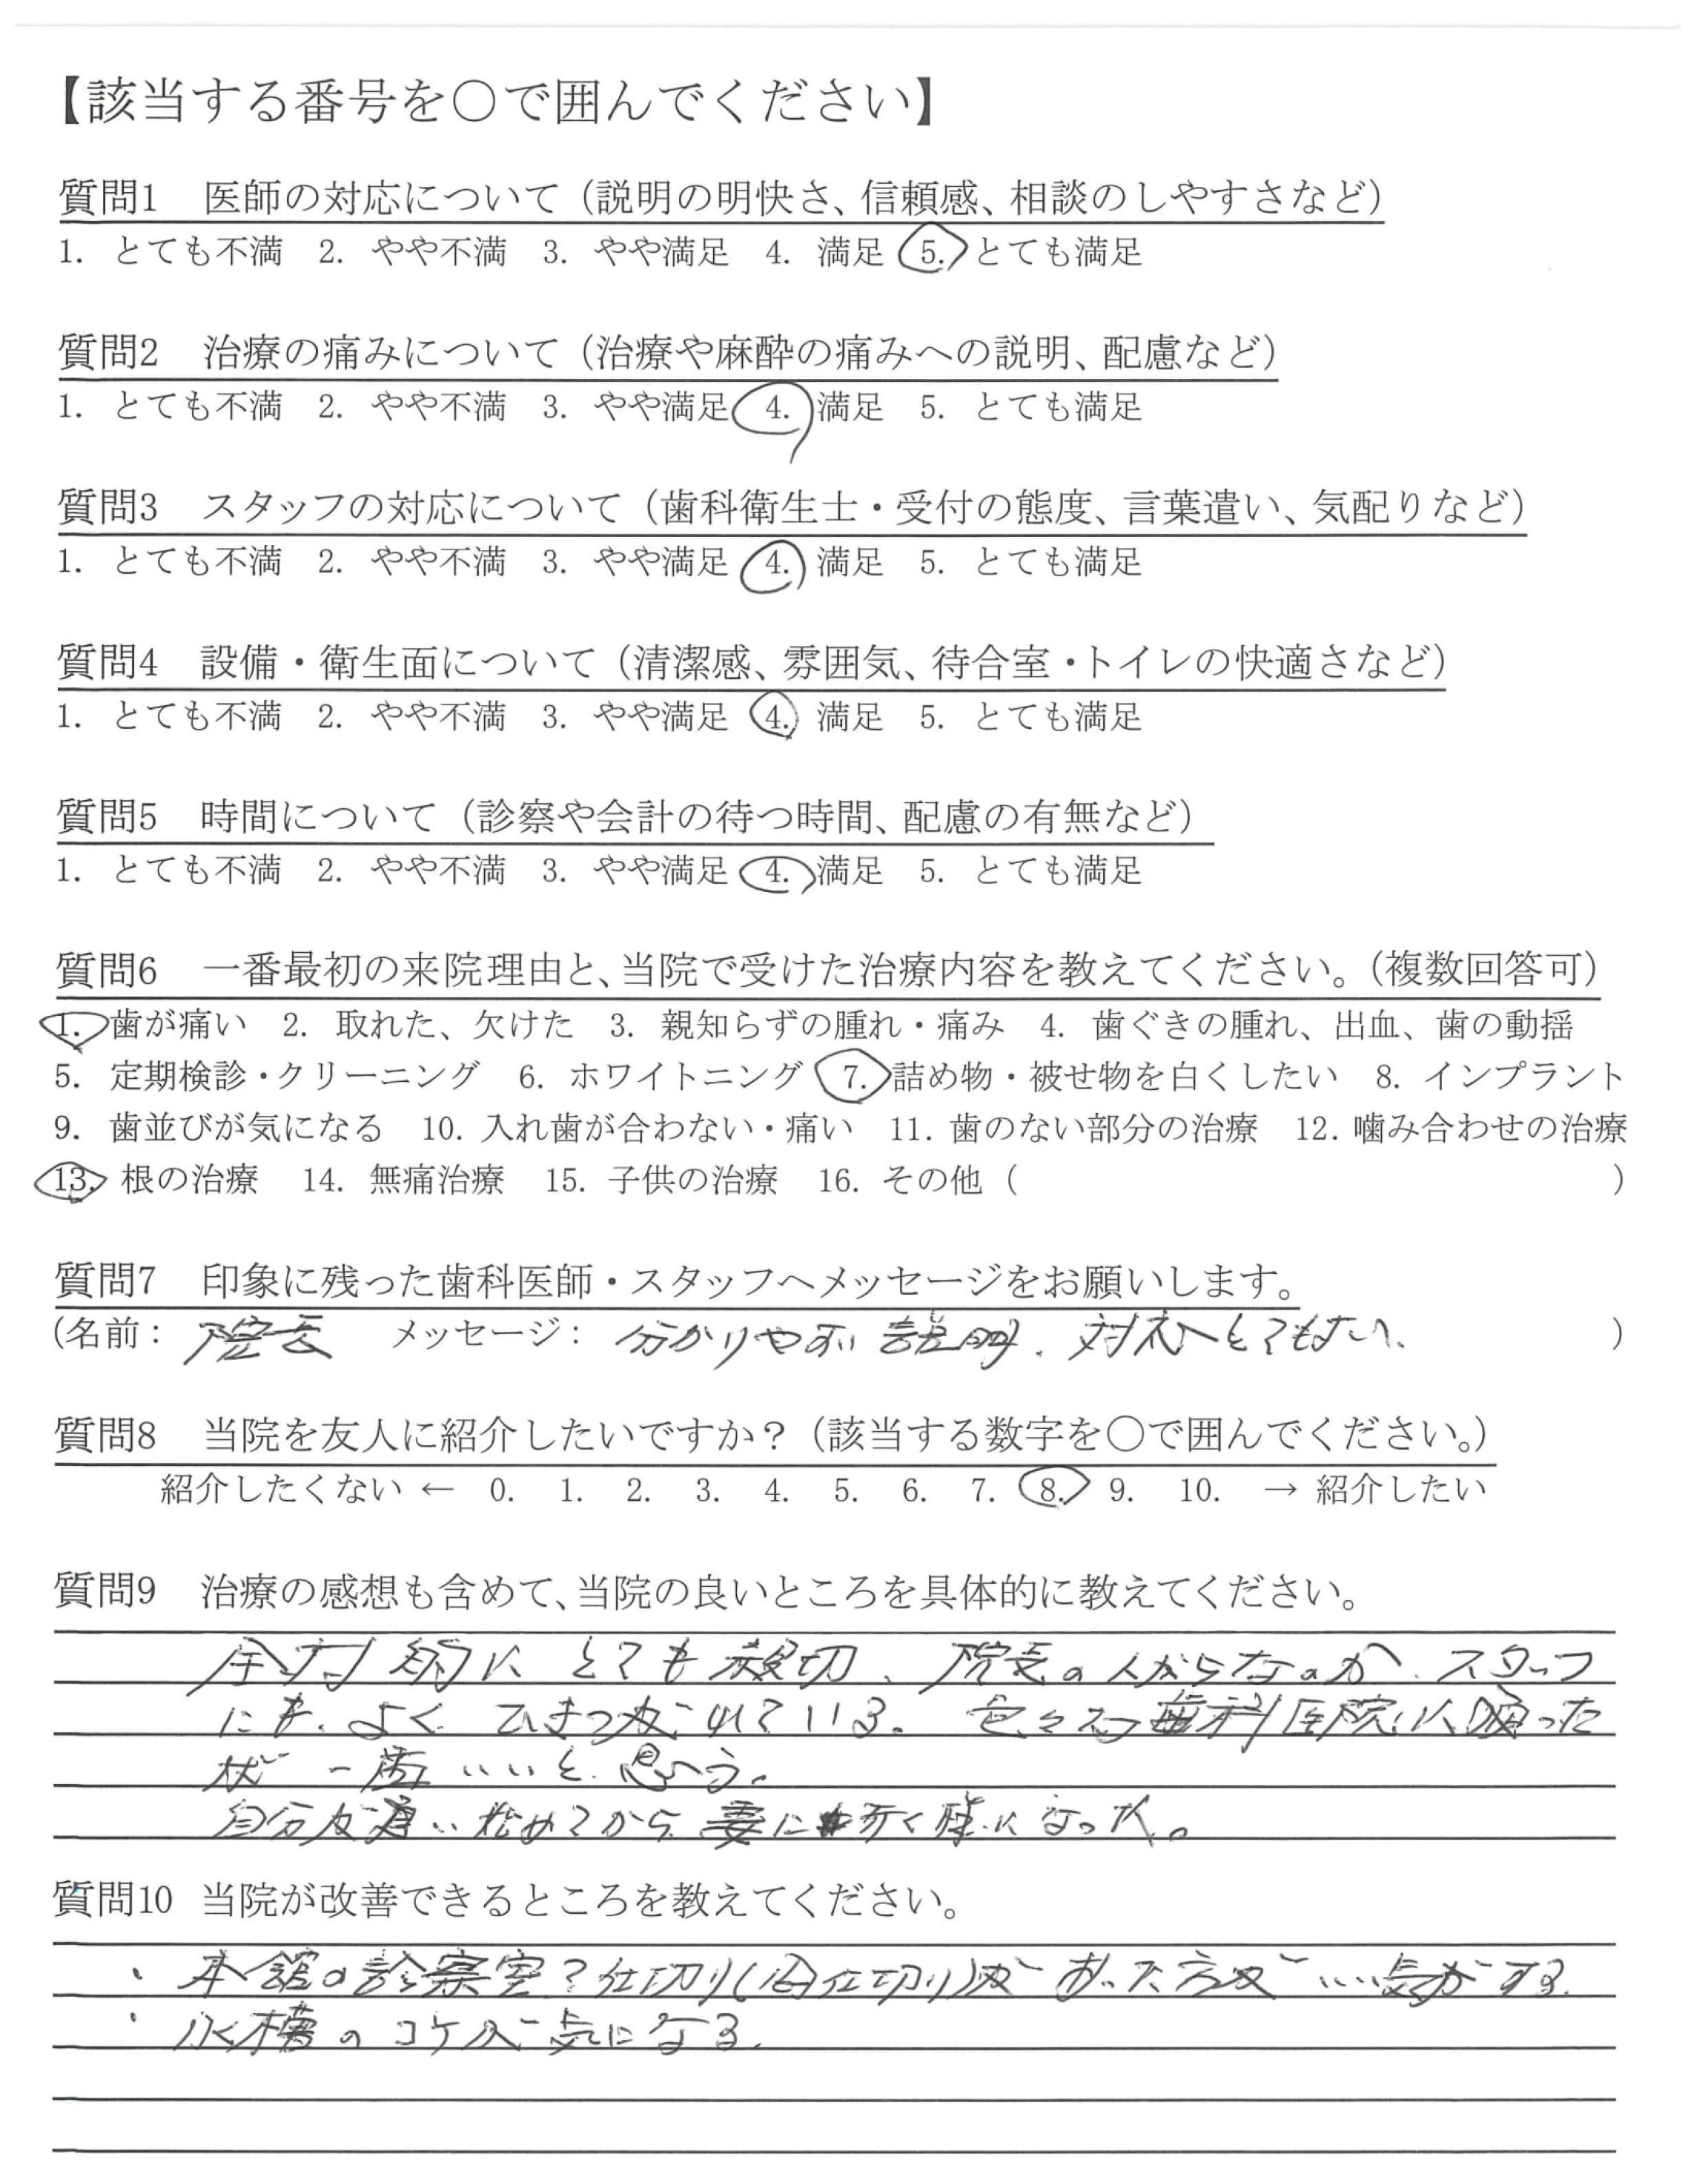 【該当する番号を○で囲んでください】
質問1　医師の対応について（説明の明快さ、信頼感、相談のしやすさなど）
1. とても不満　2. やや不満　3. やや満足　4. 満足　5. とても満足
質問2　治療の痛みについて（治療や麻酔の痛みへの説明、配慮など）
1. とても不満　2. やや不満　3. やや満足　4. 満足　5. とても満足
質問3　スタッフの対応について（歯科衛生士・受付の態度、言葉遣い、気配りなど）
1. とても不満　2. やや不満　3. やや満足　4. 満足　5. とても満足
質問4　設備・衛生面について（清潔感、雰囲気、待合室・トイレの快適さなど）
1. とても不満　2. やや不満　3. やや満足　4. 満足　5. とても満足
質問5　時間について（診察や会計の待つ時間、配慮の有無など）
1. とても不満　2. やや不満　3. やや満足　4. 満足　5. とても満足
質問6　一番最初の来院理由と、当院で受けた治療内容を教えてください。（複数回答可）
1. 歯が痛い　2. 取れた、欠けた　3. 親知らずの腫れ・痛み　4. 歯ぐきの腫れ、出血、歯の動揺
5. 定期検診・クリーニング　6. ホワイトニング　7. 詰め物・被せ物を白くしたい　8. インプラント
9. 歯並びが気になる　10. 入れ歯が合わない・痛い　11. 歯のない部分の治療　12. 噛み合わせの治療
13. 根の治療　14. 無痛治療　15. 子供の治療　16. その他（　　　　　）
質問7　印象に残った歯科医師・スタッフへメッセージをお願いします。
（名前：院長　メッセージ：分かりやすい説明、対応へとても　　　）
質問8　当院を友人に紹介したいですか？（該当する数字を○で囲んでください。）
紹介したくない ← 0. 1. 2. 3. 4. 5. 6. 7. 8. 9. 10. → 紹介したい
質問9　治療の感想も含めて、当院の良いところを具体的に教えてください。
全体的にとても親切、院長の人がらなのか、スタッフ
にも、よく　れている。色々な歯科医院に通った
が一番いいと思う。
自分が通い始めてから妻に行く様になった。
質問10 当院が改善できるところを教えてください。
・本館の診察室？仕切り（仕切り）があった方がいい気がする。
・水槽のコケが気になる。